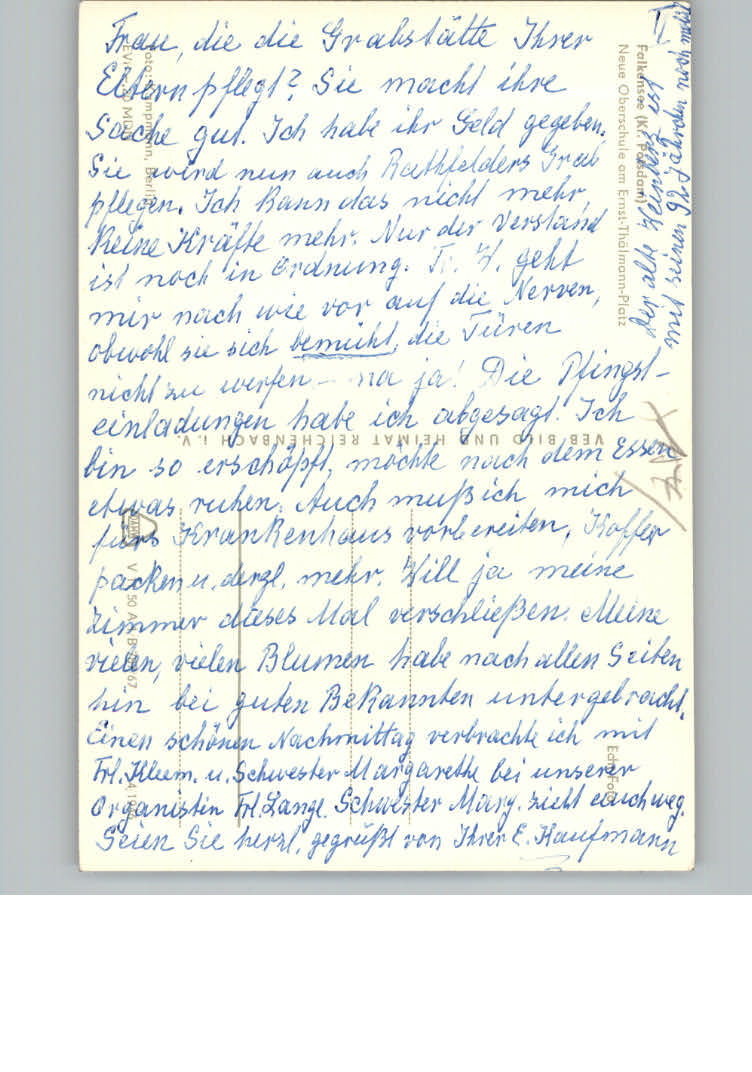 II
Frau, die die Grabstätte Ihrer
Eltern pflegt? Sie macht ihre
Sache gut. Ich habe ihr Geld gegeben.
Sie wird nun auch Rathfelders Grab
pflegen. Ich kann das nicht mehr,
keine Kräfte mehr. Nur der Verstand
ist noch in Ordnung. Fr. H. geht
mir nach wie vor auf die Nerven,
obwohl sie sich bemüht, die Türen
nicht zu werfen – na ja! Die Pfingst-
einladungen habe ich abgesagt. Ich
bin so erschöpft, möchte nach dem Essen
etwas ruhen. Auch muß ich mich
fürs Krankenhaus vorbereiten, Koffer
packen u. dergl. mehr. Will ja meine
Zimmer dieses Mal verschließen. Meine
vielen, vielen Blumen habe nach allen Seiten
hin bei guten Bekannten untergebracht.
Einen schönen Nachmittag verbrachte ich mit
Frl. Kleem. u. Schwester Margarethe bei unserer
Organistin Frl. Lange. Schwester Marg. zieht auch weg.
Seien Sie herzl. gegrüßt von Ihrer E. Kaufmann
Der alte ist
mit seinen 92 Jahren noch
Falkensee (Kr. Potsdam)
Neue Oberschule am Ernst-Thälmann-Platz
VEB BILD UND HEIMAT REICHENBACH i. V.
Echt Foto